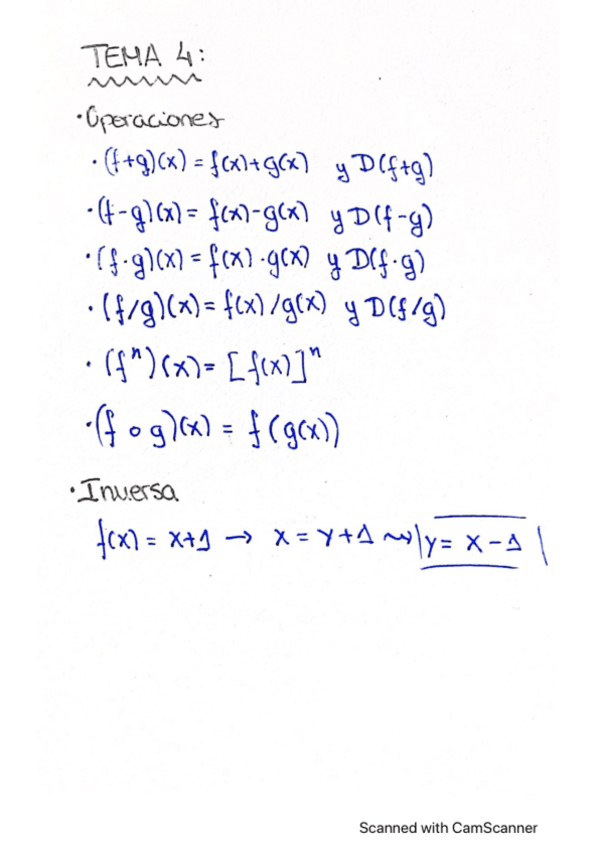 TEMA 4:
·Operaciones
·(f+g)(x) = f(x)+g(x) y D(f+g)
·(f-g)(x) = f(x)-g(x) y D(f-g)
·(f·g)(x) = f(x)·g(x) y D(f·g)
·(f/g)(x) = f(x)/g(x) y D(f/g)
·(fⁿ)(x) = [f(x)]ⁿ
·(f o g)(x) = f(g(x))
·Inversa
f(x) = x+1 → x = y+1 ⇝ |y = x-1|
Scanned with CamScanner